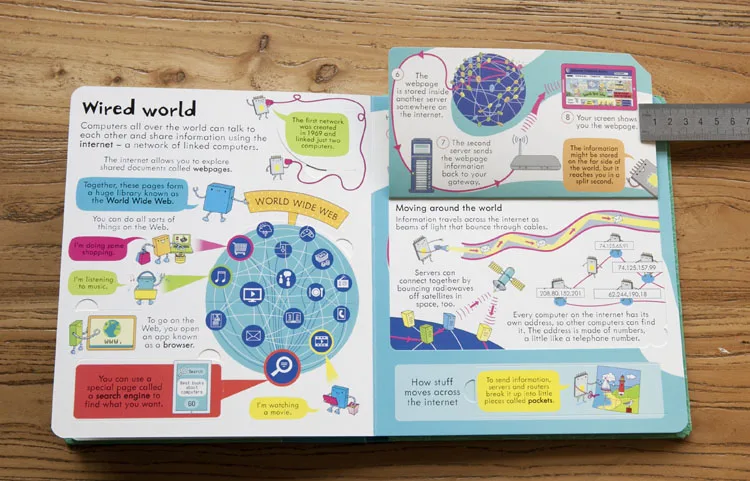 Wired world
Computers all over the world can talk to
each other and share information using the
internet – a network of linked computers.
The internet allows you to explore
shared documents called webpages.
The first network
was created
in 1969 and
linked just two
computers.
Together, these pages form
a huge library known as
the World Wide Web.
You can do all sorts of
things on the Web.
WORLD WIDE WEB
I'm doing some
shopping.
I'm listening
to music.
To go on the
Web, you open
an app known
as a browser.
WWW.
You can use a
special page called
a search engine to
find what you want.
Search
Best books
about
computers
GO
I'm watching
a movie.
6
The
webpage
is stored inside
another server
somewhere on
the internet.
7 The second
server sends
the webpage
information
back to your
gateway.
8 Your screen shows
you the webpage.
The information
might be stored
on the far side of
the world, but it
reaches you in a
split second.
1 2 3 4 5 6 7
Moving around the world
Information travels across the internet as
beams of light that bounce through cables.
Servers can
connect together by
bouncing radiowaves
off satellites in
space, too.
74.125.65.91
74.125.157.99
208.80.152.201
62.244.190.18
Every computer on the internet has its
own address, so other computers can find
it. The address is made of numbers,
a little like a telephone number.
How stuff
moves across
the internet
To send information,
servers and routers
break it up into little
pieces called packets.